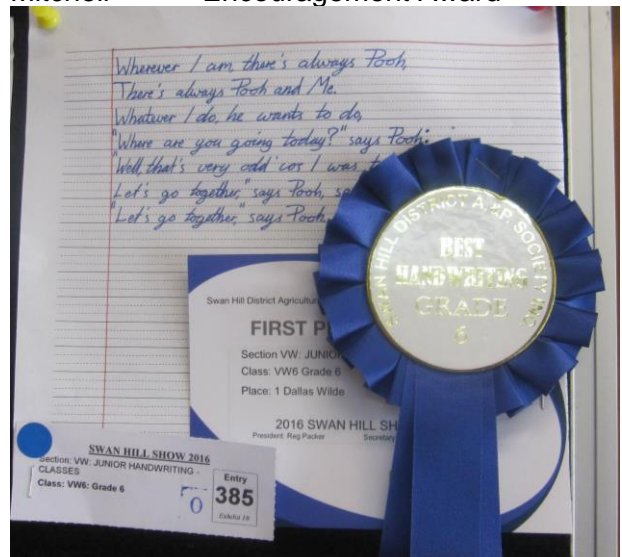 Mitchell Encouragement Award
Wherever I am, there's always Pooh,
There's always Pooh and Me.
Whatever I do, he wants to do,
"Where are you going today?" says Pooh:
"Well, that's very odd 'cos I was
Let's go together," says Pooh,
"Let's go together," says Pooh
SWAN HILL DISTRICT A.&P. SOCIETY INC.
BEST
HANDWRITING
GRADE
6
Swan Hill District
FIRST
Section VW: JUNIOR
Class: VW6 Grade 6
Place: 1 Dallas Wilde
2016 SWAN HILL
President Reg Packer Secretary
SWAN HILL SHOW 2016
Section: VW: JUNIOR HANDWRITING -
CLASSES
Class: VW6: Grade 6
Entry
385